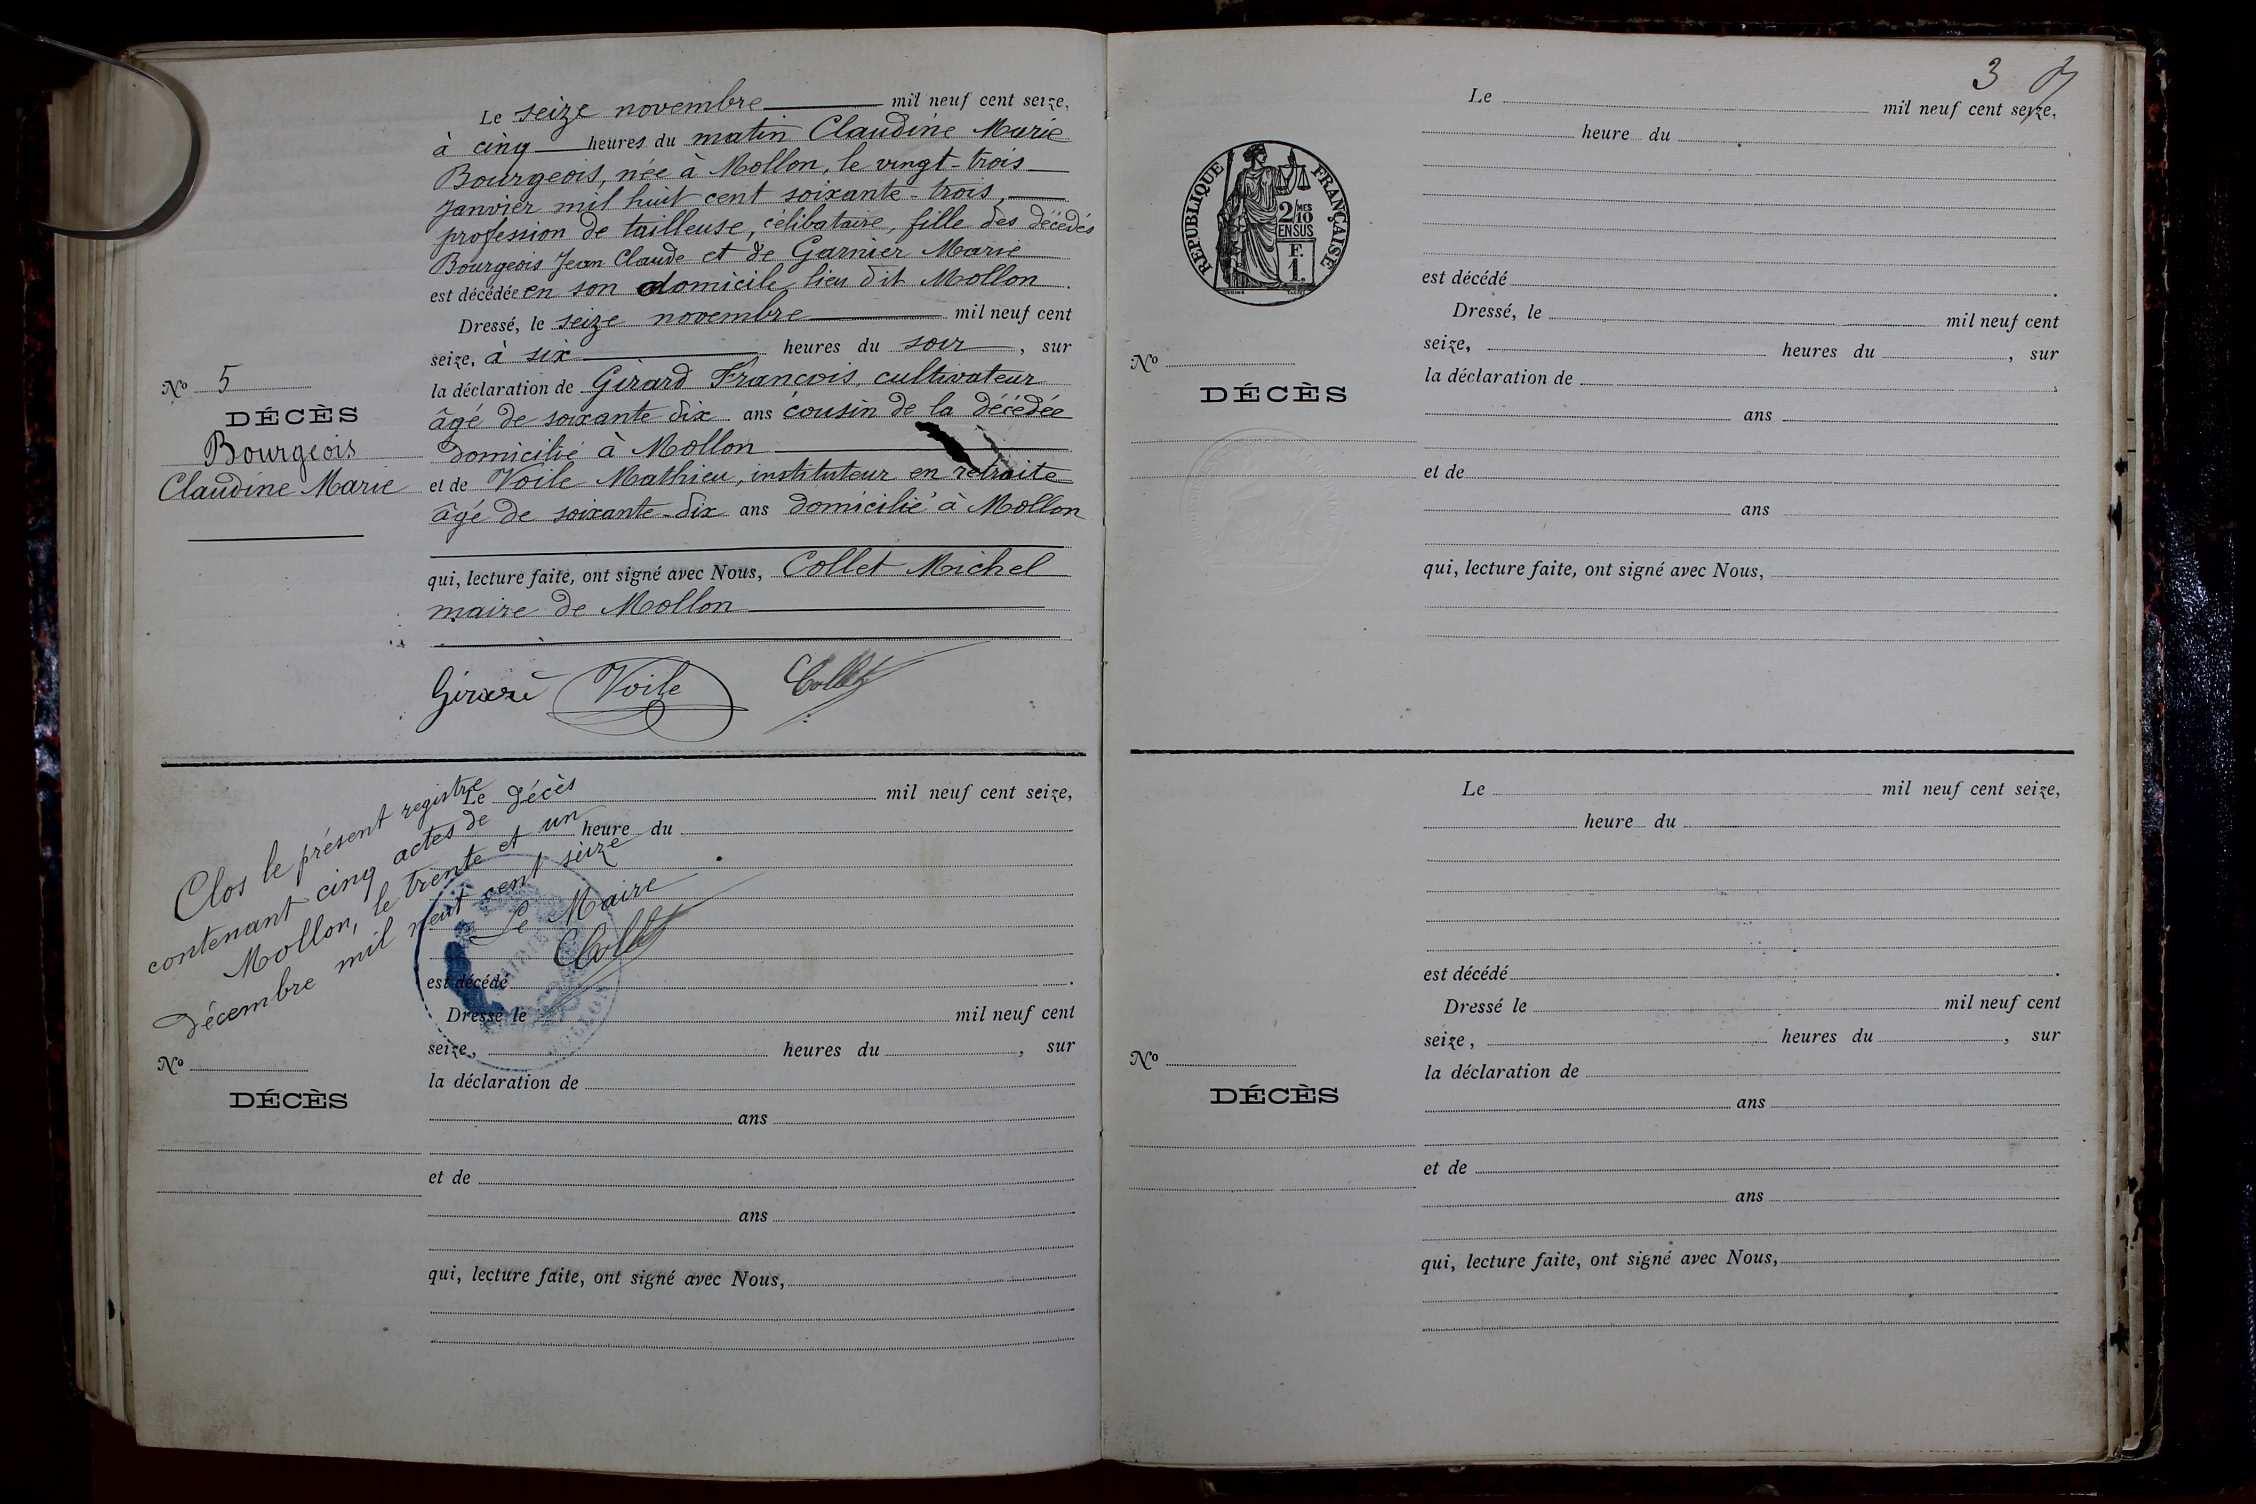 Le seize novembre mil neuf cent seize,
à cinq heures du matin Claudine Marie
Bourgeois, née à Mollon, le vingt-trois
Janvier mil huit cent soixante-trois,
profession de tailleuse, célibataire, fille des décédés
Bourgeois Jean Claude et de Garnier Marie
est décédée en son domicile, lieu dit Mollon.
Dressé, le seize novembre mil neuf cent
seize, à six heures du soir, sur
la déclaration de Girard François, cultivateur
âgé de soixante dix ans cousin de la décédée
domicilié à Mollon
et de Voile Mathieu, instituteur en retraite
âgé de soixante-dix ans domicilié à Mollon
qui, lecture faite, ont signé avec Nous, Collet Michel
maire de Mollon
Girard Voile Collet
No 5
DÉCÈS
Bourgeois
Claudine Marie
Clos le présent registre
contenant cinq actes de décès
Mollon, le trente et un
décembre mil neuf cent seize
Le Maire
Collet
MAIRIE
MOLLON
Le mil neuf cent seize,
heure du
est décédé .
Dressé le mil neuf cent
seize, heures du , sur
la déclaration de
ans
et de
ans
qui, lecture faite, ont signé avec Nous,
No
DÉCÈS
3
RÉPUBLIQUE FRANÇAISE
2/10MES
EN SUS
F.
1.
Le mil neuf cent seize,
heure du
est décédé .
Dressé, le mil neuf cent
seize, heures du , sur
la déclaration de
ans
et de
ans
qui, lecture faite, ont signé avec Nous,
No
DÉCÈS
Le mil neuf cent seize,
heure du
est décédé .
Dressé le mil neuf cent
seize, heures du , sur
la déclaration de
ans
et de
ans
qui, lecture faite, ont signé avec Nous,
No
DÉCÈS